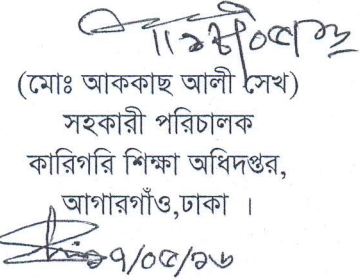 (মোঃ আককাছ আলী সেখ)
সহকারী পরিচালক
কারিগরি শিক্ষা অধিদপ্তর,
আগারগাঁও,ঢাকা ।
১৭/০৫/১৬